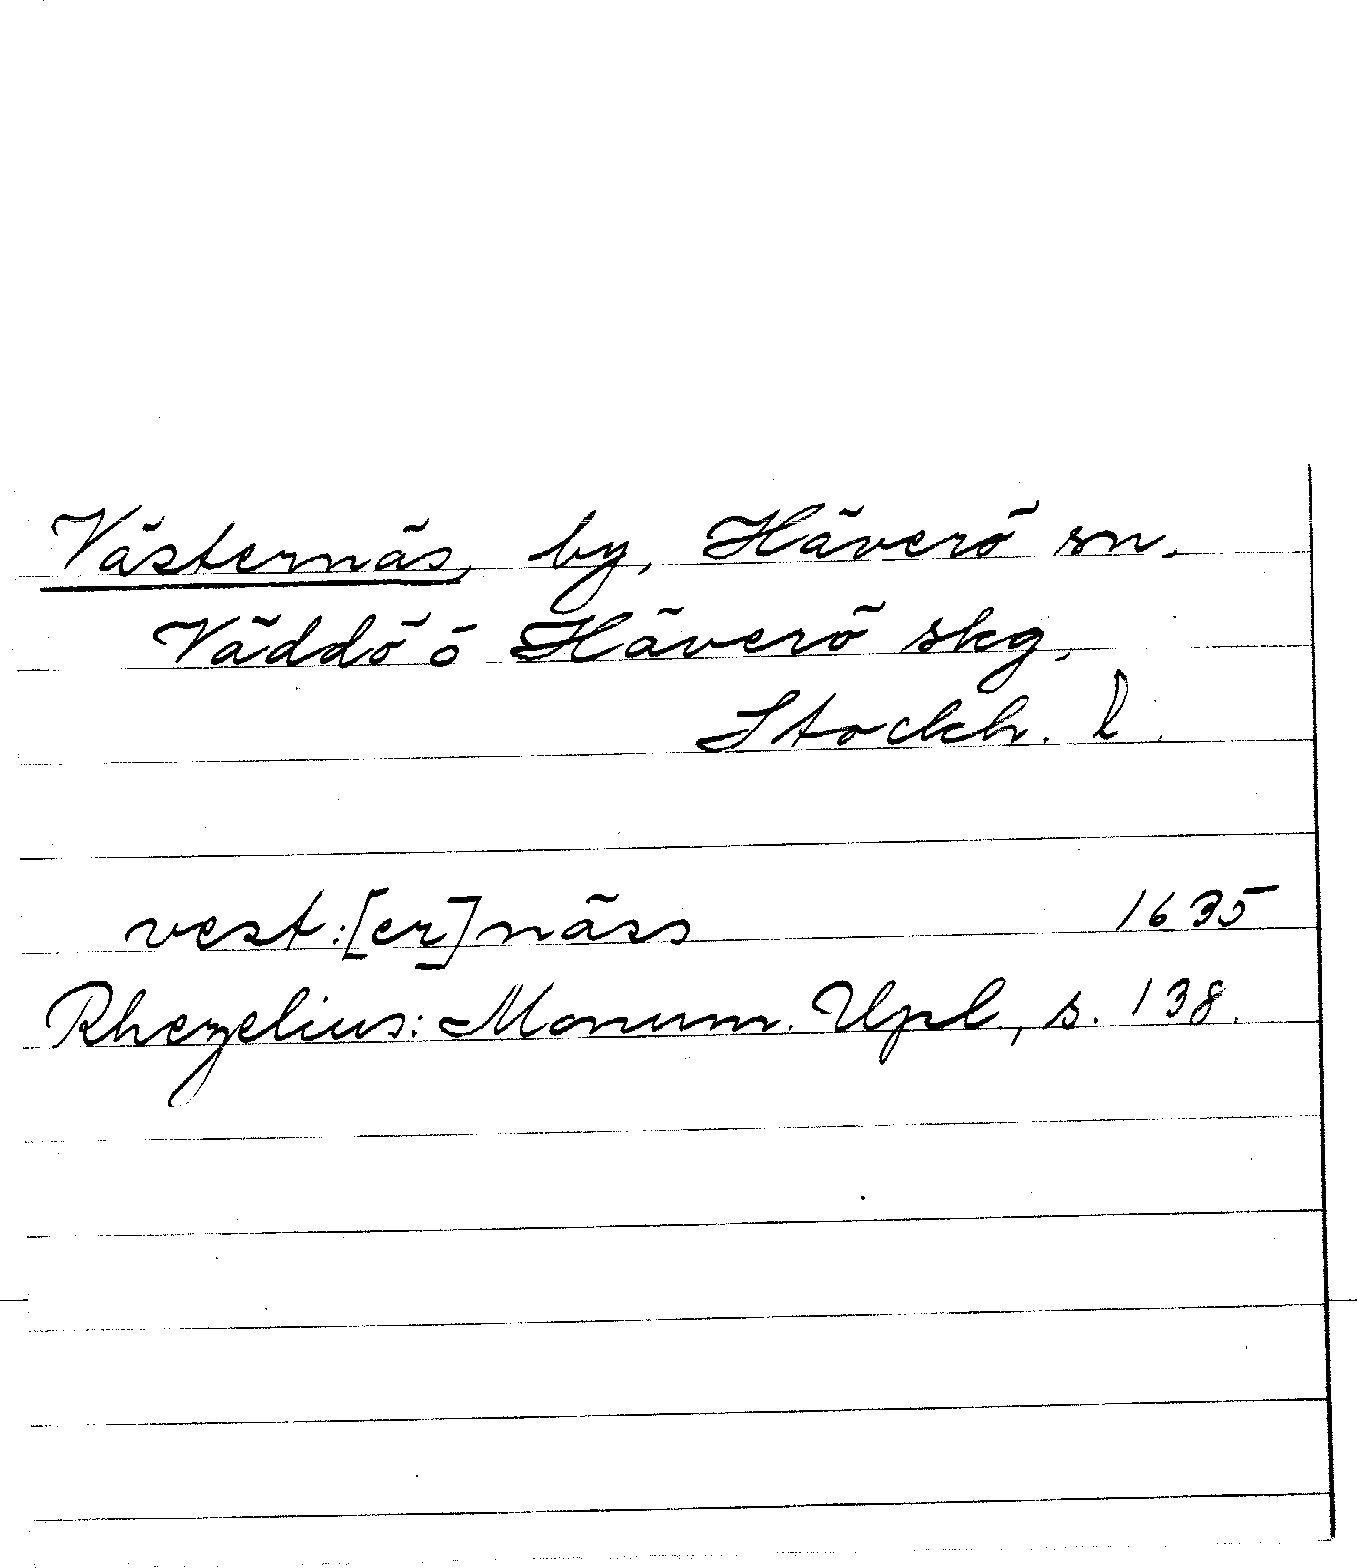 Västernäs, by, Häverö sn.
Väddö o Häverö skg,
Stockh. l.
vest:[er]näss 1635
Rhezelius: Monum. Upl., s. 138.